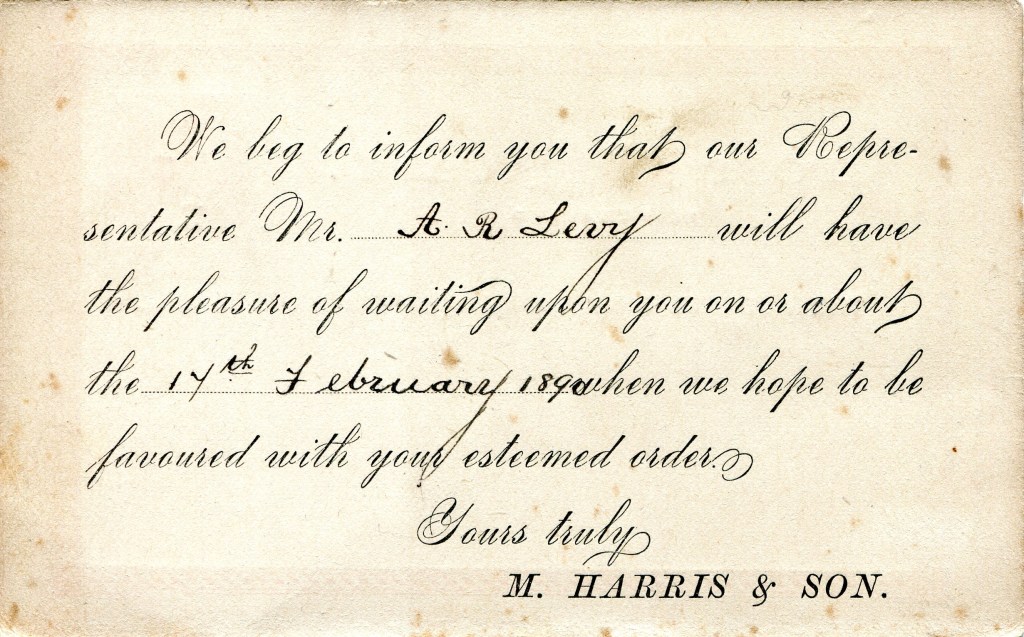 We beg to inform you that our Repre-
sentative Mr. A. R Levy will have
the pleasure of waiting upon you on or about
the 17th February 1890 when we hope to be
favoured with your esteemed order.
Yours truly
M. HARRIS & SON.